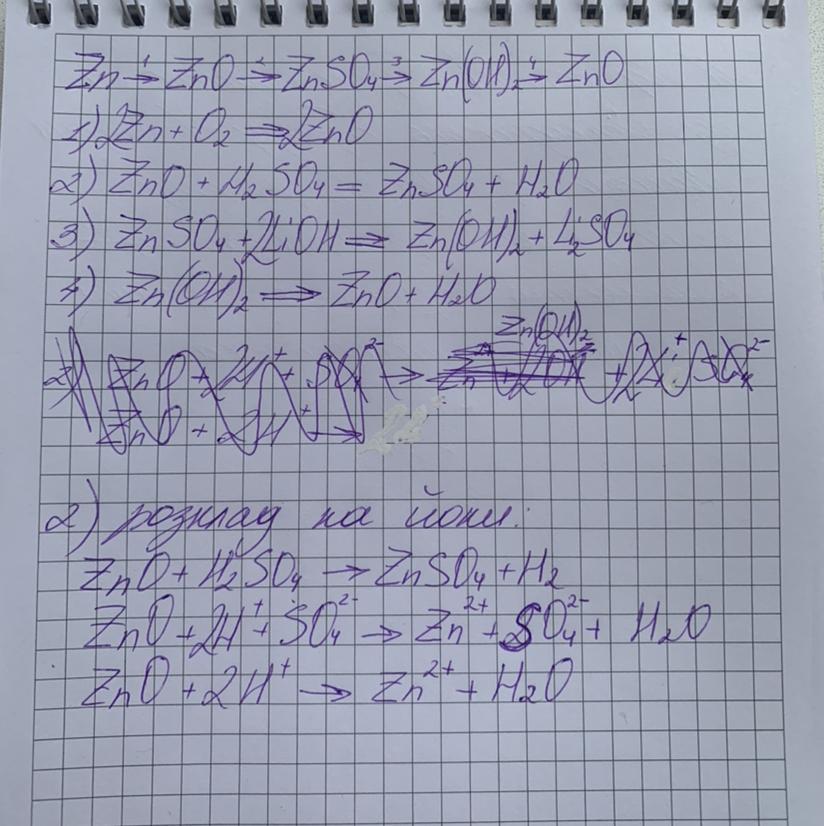 Zn →¹ ZnO →² ZnSO₄ →³ Zn(OH)₂ →⁴ ZnO
1) 2Zn + O₂ ⇒ 2ZnO
2) ZnO + H₂SO₄ = ZnSO₄ + H₂O
3) ZnSO₄ + 2LiOH ⇒ Zn(OH)₂ + Li₂SO₄
4) Zn(OH)₂ ⇒ ZnO + H₂O
Zn(OH)₂
2) ZnO + 2H⁺ + SO₄²⁻ → + 2Li⁺ SO₄²⁻
ZnO + 2H⁺ →
2) розклад на йони:
ZnO + H₂SO₄ → ZnSO₄ + H₂
ZnO + 2H⁺ + SO₄²⁻ → Zn²⁺ + SO₄²⁻ + H₂O
ZnO + 2H⁺ → Zn²⁺ + H₂O